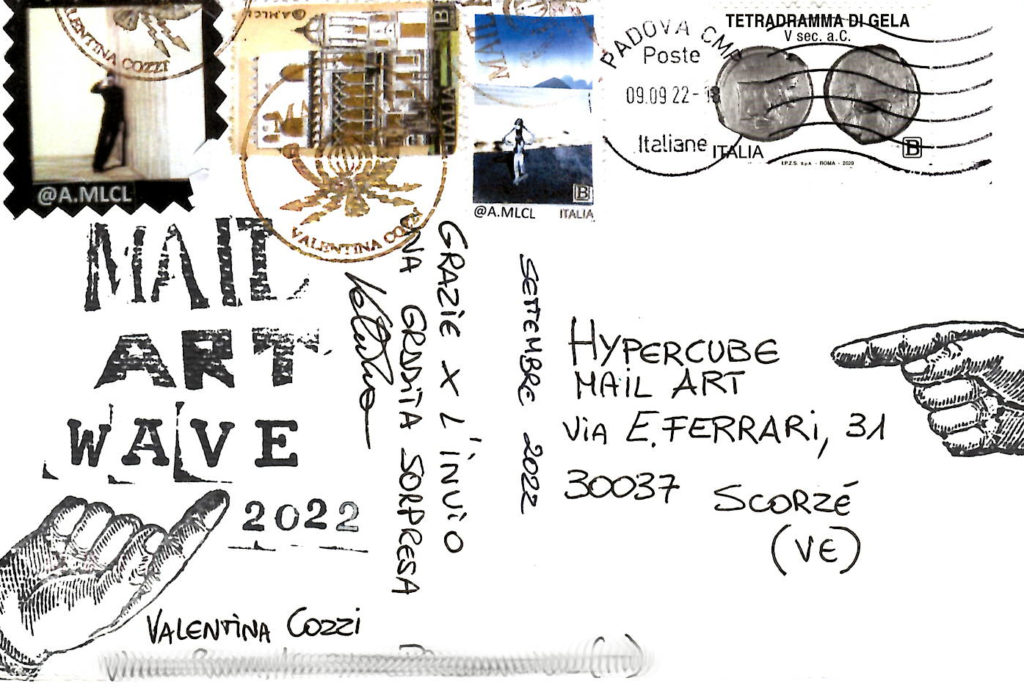 VALENTINA COZZI
@A.MLCL
@A.MLCL
ITALIA
VALENTINA COZZI
MAIL
B
@A.MLCL ITALIA
PADOVA CMP
Poste
09.09.22-18
Italiane
TETRADRAMMA DI GELA
V sec. a.C.
ITALIA
B
I.P.Z.S. S.p.A. - ROMA - 2020
MAIL
ART
WAVE
2022
GRAZIE X L'INVIO
UNA GRADITA SORPRESA
SETTEMBRE 2022
HYPERCUBE
MAIL ART
VIA E. FERRARI, 31
30037 SCORZÉ
(VE)
VALENTINA COZZI